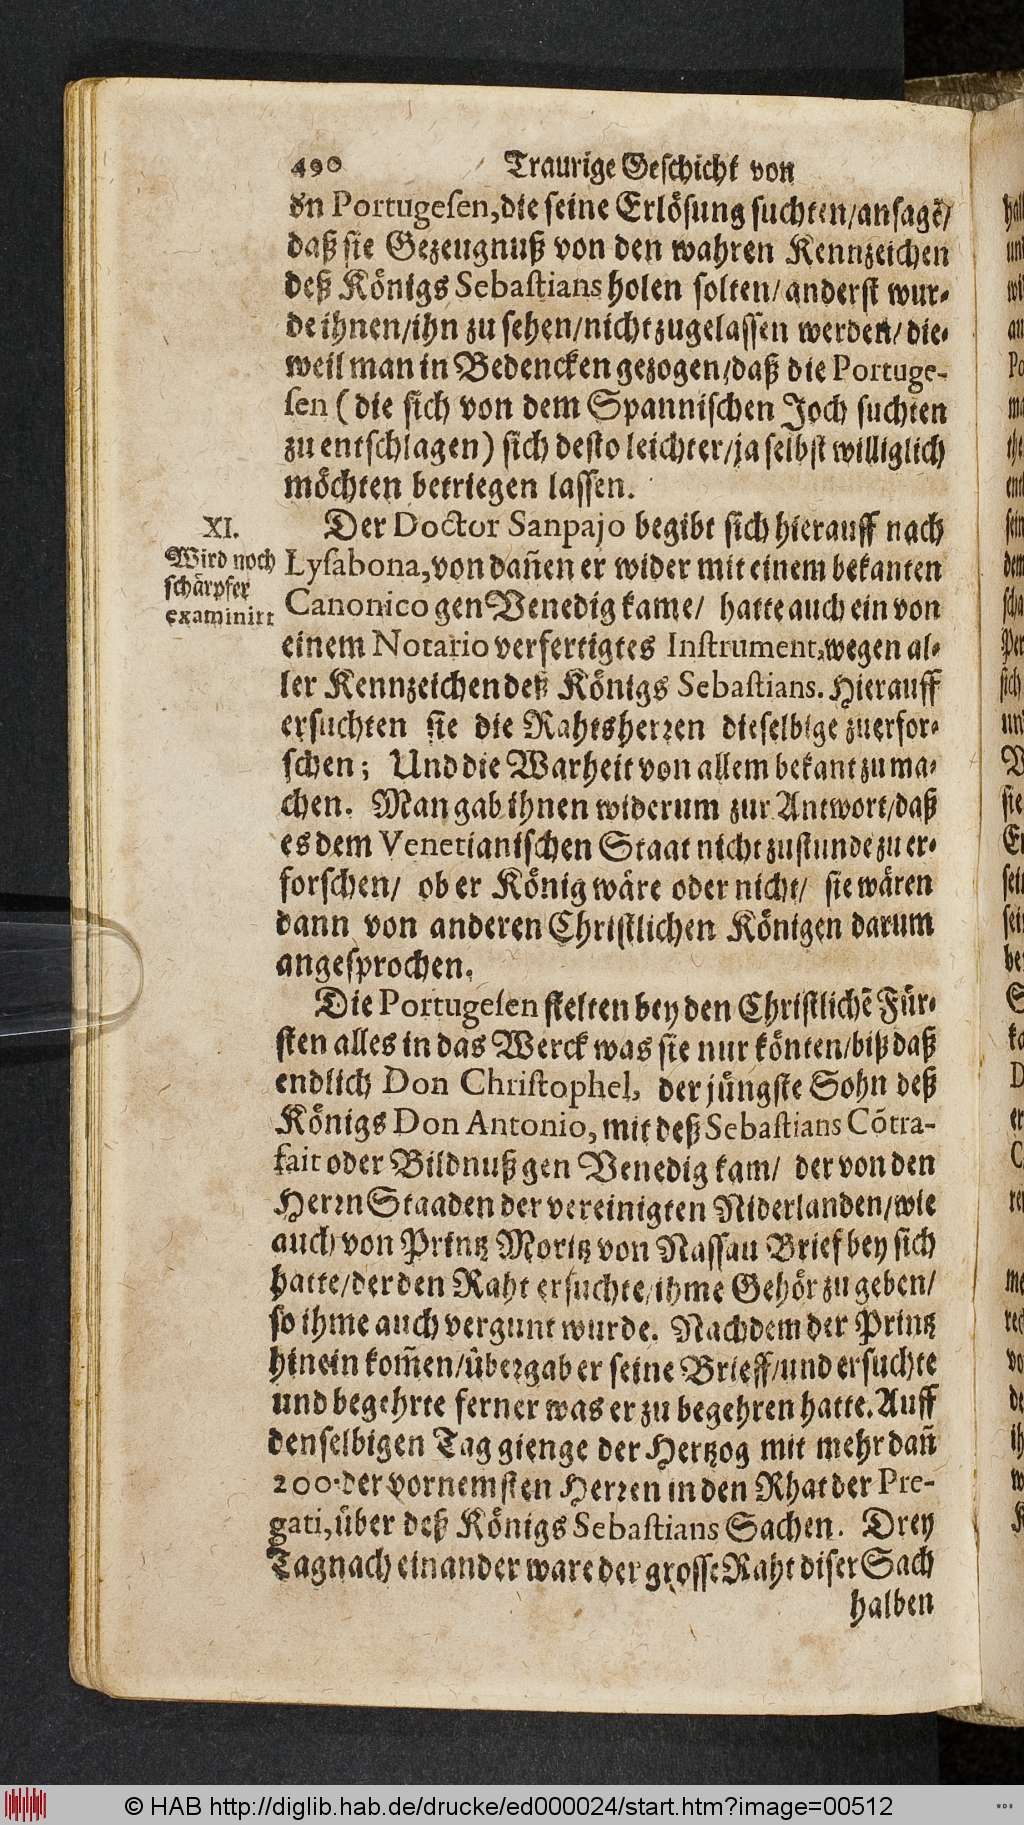 490 Traurige Geschicht von
dn Portugesen, die seine Erlösung suchten/ ansagē/
daß sie Gezeugnuß von den wahren Kennzeichen
deß Königs Sebastians holen solten/ anderst wur-
de ihnen/ ihn zu sehen/ nicht zugelassen werden/ die-
weil man in Bedencken gezogen/ daß die Portuge-
sen (die sich von dem Spannischen Joch suchten
zu entschlagen) sich desto leichter/ ja selbst williglich
möchten betriegen lassen.
XI.
Wird noch
schärpfer
examinirt
Der Doctor Sanpajo begibt sich hierauff nach
Lysabona, von dañen er wider mit einem bekanten
Canonico gen Venedig kame/ hatte auch ein von
einem Notario verfertigtes Instrument, wegen al-
ler Kennzeichen deß Königs Sebastians. Hierauff
ersuchten sie die Rahtsherren dieselbige zuerfor-
schen; Und die Warheit von allem bekant zu ma-
chen. Man gab ihnen widerum zur Antwort/ daß
es dem Venetianischen Staat nicht zustunde zu er-
forschen/ ob er König wäre oder nicht/ sie wären
dann von anderen Christlichen Königen darum
angesprochen.
Die Portugesen stelten bey den Christlichē Für-
sten alles in das Werck was sie nur könten/ biß daß
endlich Don Christophel, der jüngste Sohn deß
Königs Don Antonio, mit deß Sebastians Cōtra-
fait oder Bildnuß gen Venedig kam/ der von den
Herrn Staaden der vereinigten Niderlanden/ wie
auch von Printz Moritz von Nassau Brief bey sich
hatte/ der den Raht ersuchte/ ihme Gehör zu geben/
so ihme auch vergunt wurde. Nachdem der Printz
hinein kom̃en/ übergab er seine Brieff/ und ersuchte
und begehrte ferner was er zu begehren hatte. Auff
denselbigen Tag gienge der Hertzog mit mehr dañ
200. der vornemsten Herren in den Rhat der Pre-
gati, über deß Königs Sebastians Sachen. Drey
Tag nach einander ware der grosse Raht diser Sach
halben
© HAB http://diglib.hab.de/drucke/ed000024/start.htm?image=00512